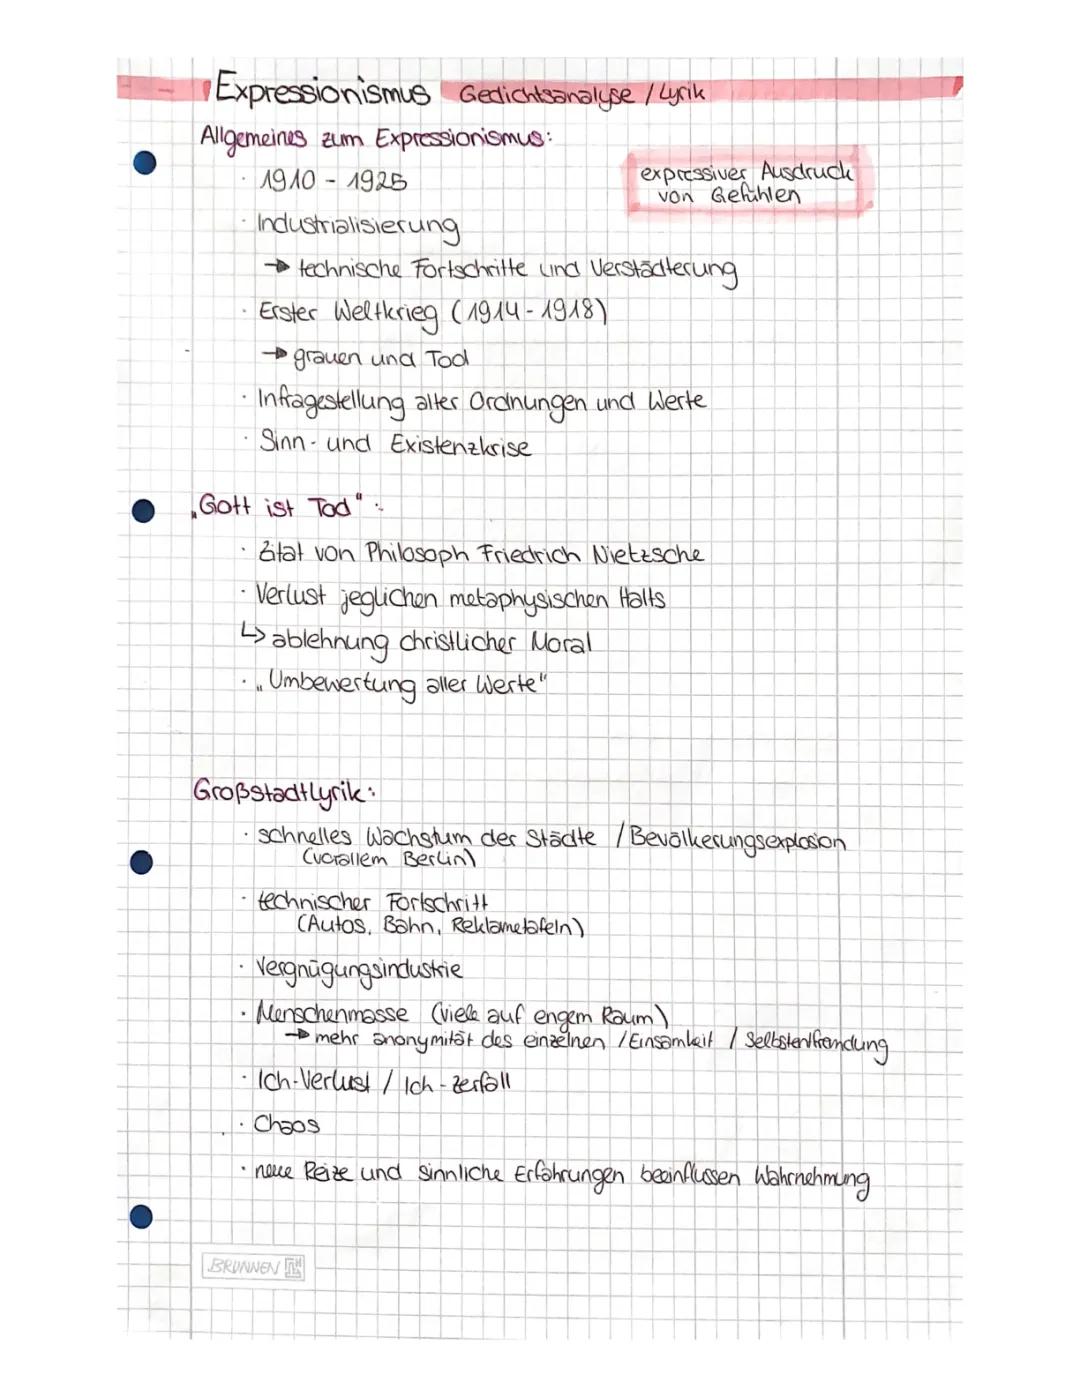 Expressionismus Gedichtsanalyse / Lyrik
Allgemeines zum Expressionismus:
expressiver Ausdruck
von Gefühlen
· 1910 - 1925
· Industrialisierung
→ technische Fortschritte und Verstädterung
· Erster Weltkrieg (1914-1918)
→ grauen und Tod
· Infragestellung alter Ordnungen und Werte
· Sinn- und Existenzkrise
„Gott ist Tod“:
· Zitat von Philosoph Friedrich Nietzsche
· Verlust jeglichen metaphysischen Halts
↳ ablehnung christlicher Moral
· „Umbewertung aller Werte"
Großstadtlyrik:
· schnelles Wachstum der Städte / Bevölkerungsexplosion
(vorallem Berlin)
· technischer Fortschritt
(Autos, Bahn, Reklametafeln)
· Vergnügungsindustrie
· Menschenmasse (viele auf engem Raum)
→ mehr anonymität des einzelnen / Einsamkeit / Selbstentfremdung
· Ich-Verlust / Ich-zerfall
· Chaos
· neue Reize und sinnliche Erfahrungen beeinflussen Wahrnehmung
BRUNNEN